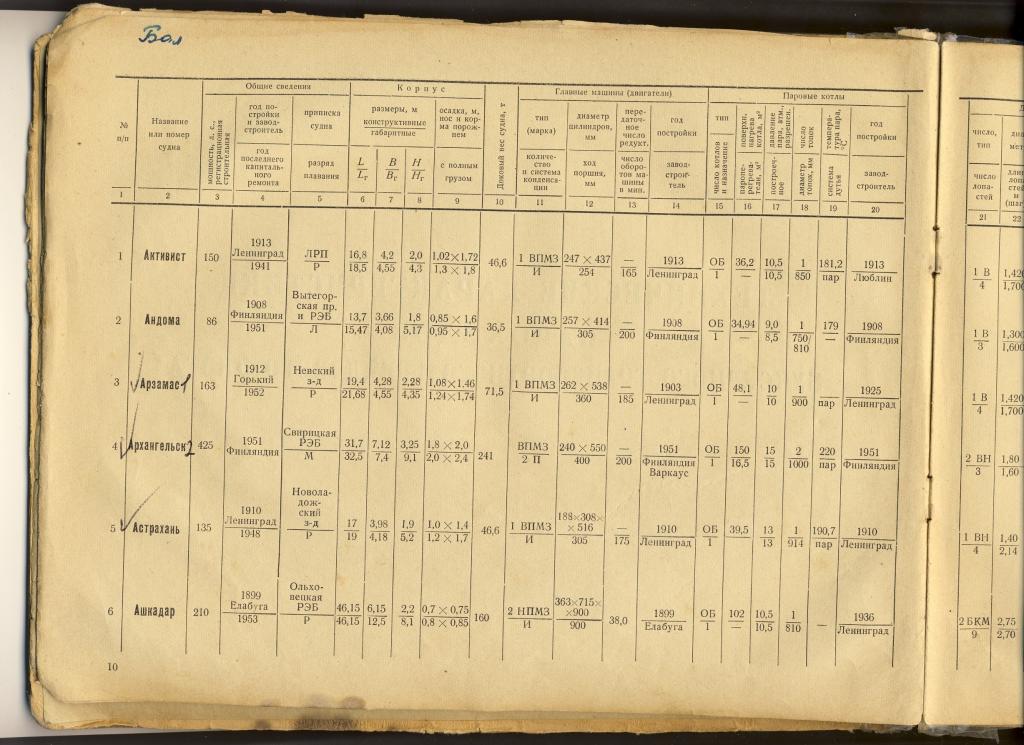 Бал
Общие сведения
Корпус
Главные машины (двигатели)
Паровые котлы
№ п/п
Название или номер судна
мощность, л. с., регистрационная строительная
год постройки и завод-строитель
год последнего капитального ремонта
приписка судна
разряд плавания
размеры, м
конструктивные
габаритные
L B H
Lг Bг Hг
осадка, м, нос и корма порожнем
с полным грузом
Доковый вес судна, т
тип (марка)
количество и система конденсации
диаметр цилиндров, мм
ход поршня, мм
передаточное число редукт.
число оборотов машины в мин.
год постройки
завод-строитель
тип
число котлов и назначение
поверхн. нагрева котла, м²
паперегревателя, м²
давление пара, атм., разрешен.
построечное
число топок
диаметр топок, мм
температура пара, °С
система дутья
год постройки
завод-строитель
число, тип
число лопастей
1 2 3 4 5 6 7 8 9 10 11 12 13 14 15 16 17 18 19 20 21 22
1 Активист 150 1913 Ленинград ЛРП 16,8 4,2 2,0 1,02×1,72 46,6 1 ВПМЗ 247 × 437 — 1913 ОБ 36,2 10,5 1 181,2 1913 1 В 1,420
1941 Р 18,5 4,55 4,3 1,3 × 1,8 И 254 165 Ленинград 1 — 10,5 850 пар Люблин 4 1,700
2 Андома 86 1908 Финляндия Вытегорская пр. и РЭБ 13,7 3,66 1,8 0,85 × 1,6 36,5 1 ВПМЗ 257 × 414 — 1908 ОБ 34,94 9,0 1 179 1908 1 В 1,300
1951 Л 15,47 4,08 5,17 0,95 × 1,7 И 305 200 Финляндия 1 — 8,5 750/810 — Финляндия 3 1,600
3 Арзамас 1 163 1912 Горький Невский з-д 19,4 4,28 2,28 1,08×1.46 71,5 1 ВПМЗ 262 × 538 — 1903 ОБ 48,1 10 1 1925 1 В 1,420
1952 Р 21,68 4,55 4,35 1,24×1,74 И 360 185 Ленинград 1 — 10 900 пар Ленинград 4 1,700
4 Архангельск 2 425 1951 Финляндия Свирицкая РЭБ 31,7 7,12 3,25 1,8 × 2,0 241 ВПМЗ 240 × 550 — 1951 ОБ 150 15 2 220 1951 2 ВН 1,80
М 32,5 7,4 9,1 2,0 × 2,4 2 П 400 200 Финляндия Варкаус 1 16,5 15 1000 пар Финляндия 3 1,60
5 Астрахань 135 1910 Ленинград Новоладожский з-д 17 3,98 1,9 1,0 × 1,4 46,6 1 ВПМЗ 188×308× × 516 — 1910 ОБ 39,5 13 1 190,7 1910 1 ВН 1,40
1948 Р 19 4,18 5,2 1,2 × 1,7 И 305 175 Ленинград 1 13 914 пар Ленинград 4 2,14
6 Ашкадар 210 1899 Елабуга Ольховецкая РЭБ 46,15 6,15 2,2 0,7 × 0,75 160 2 НПМЗ 363×715× ×900 38,0 1899 ОБ 102 10,5 1 — 1936 2 БКМ 2,75
1953 Р 46,15 12,5 8,1 0,8 × 0,85 И 900 Елабуга 1 — 10,5 810 Ленинград 9 2,70
10